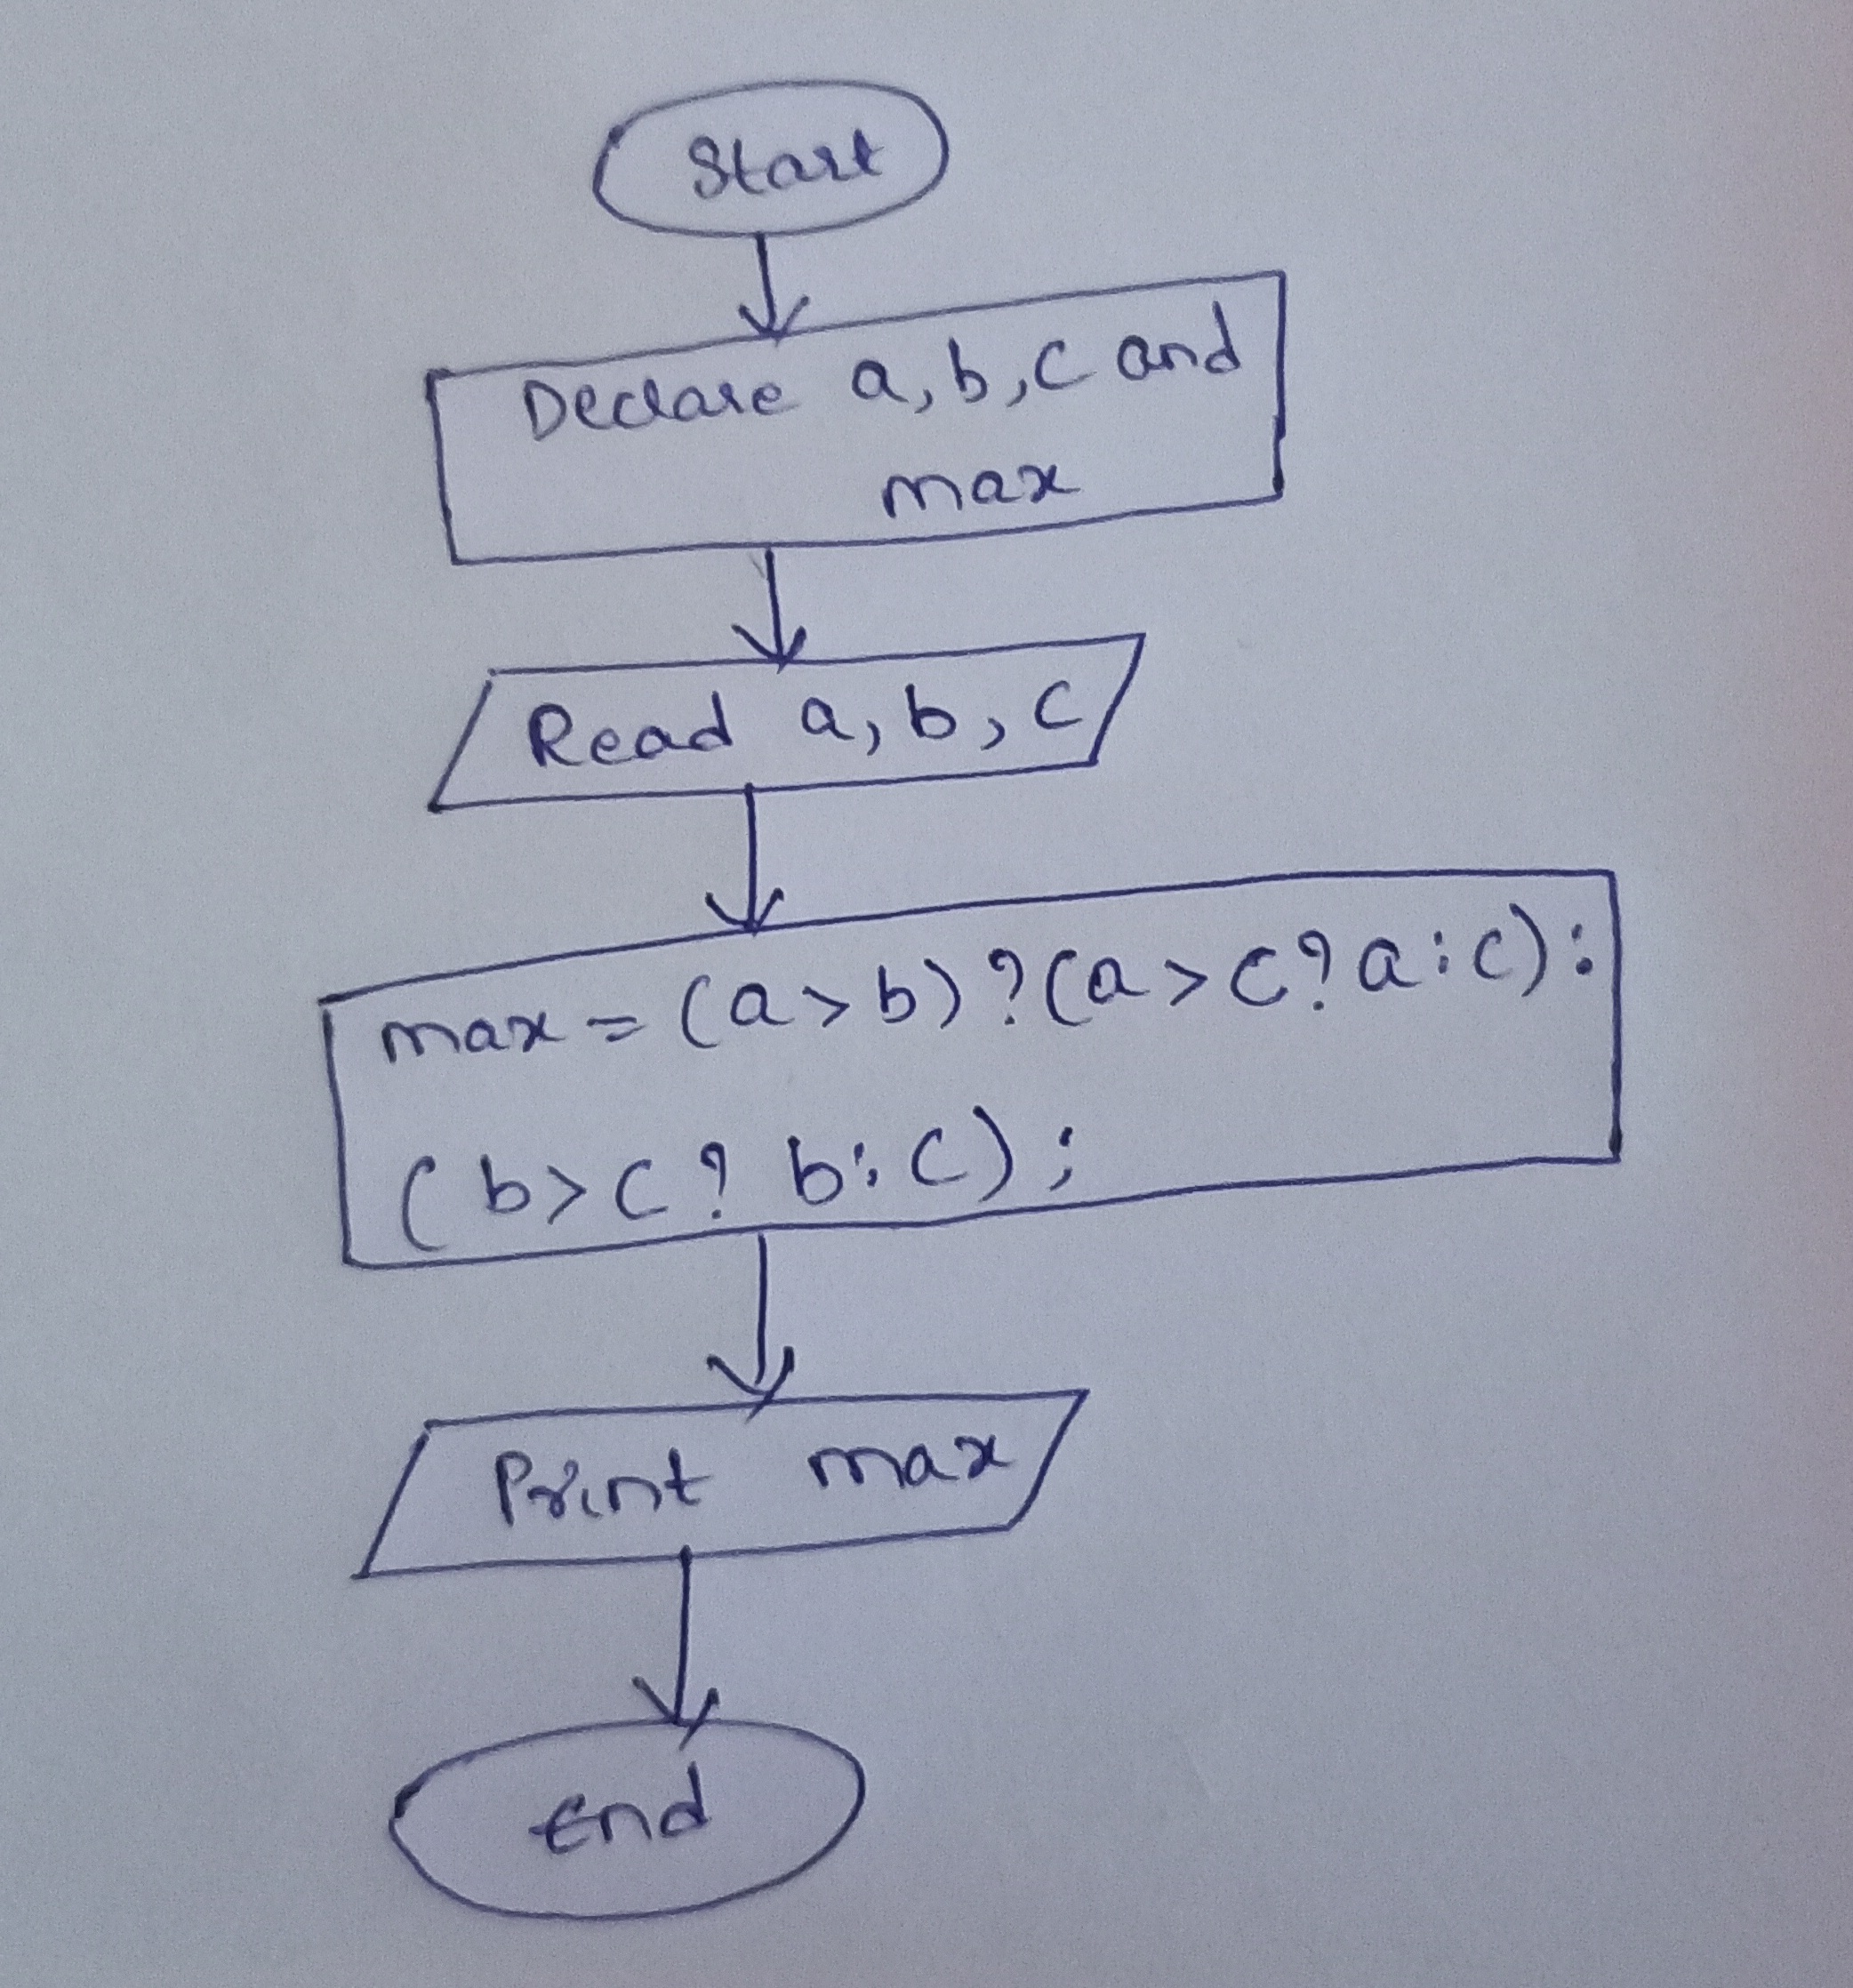 Start
Declare a, b, c and
max
Read a, b, c
max = (a > b) ? (a > c ? a : c) :
(b > c ? b : c) ;
Print max
End